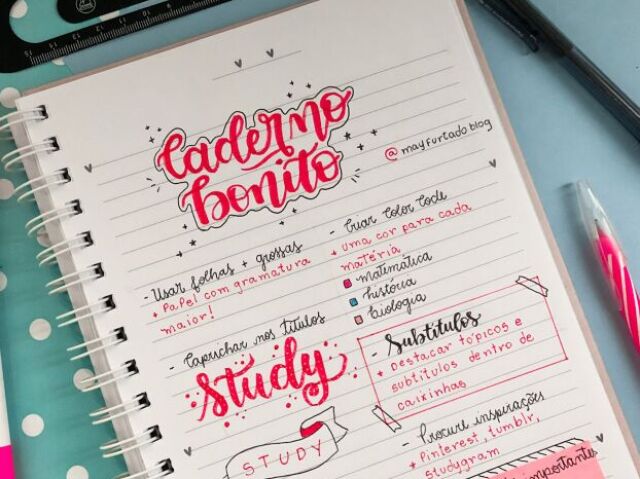 Caderno
bonito
@mayfurtadoblog
- Usar folhas + grossas
+ Papel com gramatura
maior!
- Criar Color Code
+ uma cor para cada
matéria
matemática
história
biologia
- Caprichar nos títulos
Study
STUDY
- Subtítulos
+ Destacar tópicos e
subtítulos dentro de
caixinhas
- Procure inspirações
+ Pinterest, tumblr,
studygram
importantes